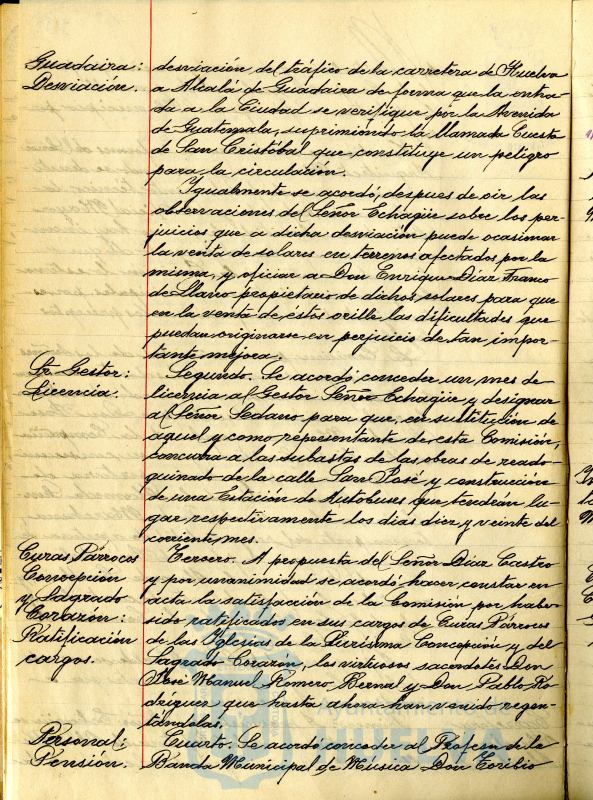 Guadaira: desviación del tráfico de la carretera de Huelva
Desviación. a Alcalá de Guadaira de forma que la entra-
da a la Ciudad se verifique por la Avenida
de Guatemala, suprimiendo la llamada Cuesta
de San Cristóbal que constituye un peligro
para la circulación.
Igualmente se acordó, despues de oir las
observaciones del Señor Echagüe sobre los per-
juicios que a dicha desviación puede ocasionar
la venta de solares en terrenos afectados por la
misma, y oficiar a Don Enrique Díaz Franco
de Llano propietario de dichos solares para que
en la venta de estos orille las dificultades que
puedan originarse en perjuicio de tan impor-
tante mejora.
Sr. Gestor: Segundo. Se acordó conceder un mes de
Licencia. licencia al Gestor Señor Echagüe y designar
al Señor Sedano para que, en sustitución de
aquel y como representante de esta Comisión,
concurra a las subastas de las obras de reado-
quinado de la calle San José y construcción
de una Estación de Autobuses que tendrán lu-
gar respectivamente los dias diez y veinte del
corriente mes.
Curas Párrocos Tercero. A propuesta del Señor Díaz Castro
Concepción y por unanimidad se acordó hacer constar en
y Sagrado acta la satisfacción de la Comisión por haber
Corazón: sido ratificados en sus cargos de Curas Párrocos
Ratificación de las Iglesias de la Purísima Concepción y del
cargos. Sagrado Corazón, los virtuosos sacerdotes Don
José Manuel Romero Bernal y Don Pablo Ro-
dríguez que hasta ahora han venido regen-
tándolas.
Personal: Cuarto. Se acordó conceder al Profesor de la
Pensión. Banda Municipal de Música Don Toribio
HUELVA